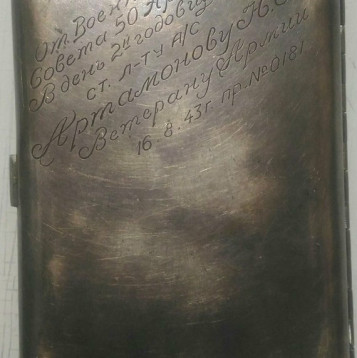 От Воен
Совета 50 Ар
В день 2й годовщ
ст. л-ту а/с
Артамонову Н.
Ветерану Армии
16.8.43г. пр.№0181.